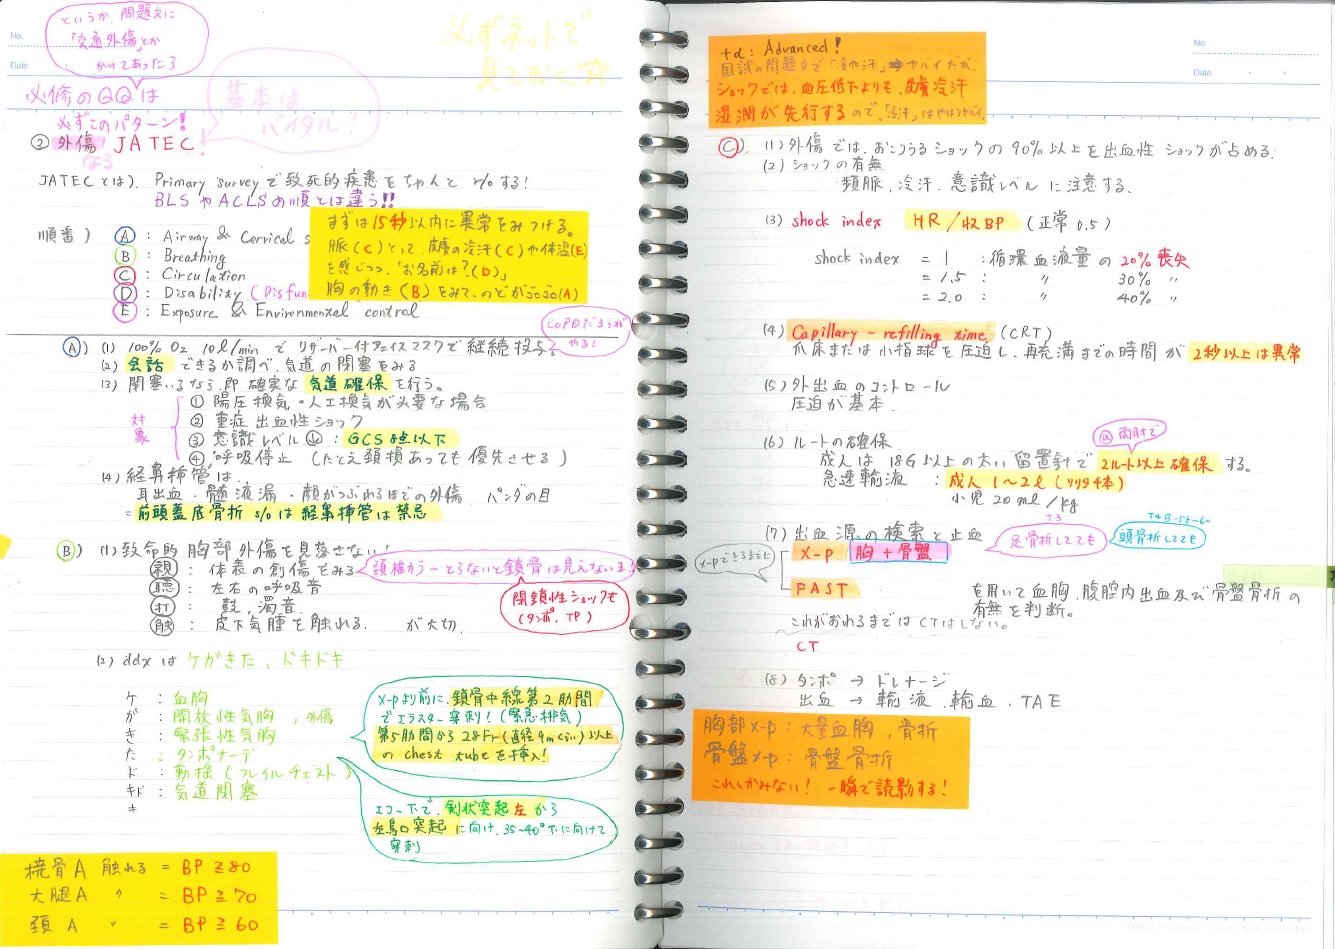 No.
Date
というか、問題文に
「交通外傷」とか
かいてあったら
必修のQQは
必ずこのパターン!
基本は
バイタル!
必ずネットで
見ておく☆
② 外傷 JATEC!
なら
JATECとは). Primary surveyで致死的疾患をちゃんと r/oする!
BLSやACLSの順とは違う!!
まずは15秒以内に異常をみつける。
脈(C)とって、皮膚の冷汗(C)や体温(E)
を感じつつ、「お名前は?(D)」
胸の動き(B)をみて、のどがゴロゴロ(A)
順番) A : Airway & Cervical s
B : Breathing
C : Circulation
D : Disability (Disfun
E : Exposure & Environmental control
COPDだろうが
やる!
A) (1) 100% O2 10ℓ/minで リザーバー付フェイスマスクで継続投与。
(2) 会話 できるか調べ、気道の閉塞をみる
(3) 閉塞いるなら、即 確実な 気道確保 を行う。
対象
① 陽圧換気・人工換気が必要な場合
② 重症出血性ショック
③ 意識レベル↓ : GCS 8点以下
④ 呼吸停止 (たとえ頚損あっても優先させる)
(4) 経鼻挿管は、
耳出血・髄液漏・顔がつぶれるほどの外傷 パンダの目
= 前頭蓋底骨折 s/o は 経鼻挿管は禁忌
B) (1) 致命的胸部外傷を見落さない!
視 : 体表の創傷をみる
頚椎カラーとらないと鎖骨は見えないよ!
聴 : 左右の呼吸音
打 : 鼓, 濁音
触 : 皮下気腫を触れる. が大切.
閉鎖性ショックも
(タンポ, TP)
(2) ddxは ケがきた、ドキドキ
ケ : 血胸
が : 開放性気胸 , 外傷
き : 緊張性気胸
た : タンポナーデ
ド : 動揺 (フレイルチェスト)
キド : 気道閉塞
キ
X-Pより前に、鎖骨中線第2肋間
でエラスター穿刺!(緊急排気)
第5肋間から28Fr(直径9mmくらい)以上
の chest tubeを挿入!
エコー下で、剣状突起左から
左烏口突起に向け、35~40°下に向けて
穿刺
橈骨A 触れる = BP≧80
大腿A 〃 = BP≧70
頚A 〃 = BP≧60
No.
Date
+α: Advanced!
国試の問題文で「冷や汗」⇒ヤバイだが、
ショックでは、血圧低下よりも、皮膚冷汗
湿潤が先行するので、「冷汗」はやはりヤバイ。
C). (1) 外傷では、おこりうるショックの90%以上を出血性ショックが占める.
(2) ショックの有無
頻脈、冷汗、意識レベルに注意する.
(3) shock index HR/収BP (正常0.5)
shock index = 1 : 循環血液量の20%喪失
= 1.5 : 〃 30% 〃
= 2.0 : 〃 40% 〃
(4) Capillary-refilling time (CRT)
爪床または小指球を圧迫し、再充満までの時間が 2秒以上は異常
(5) 外出血のコントロール
圧迫が基本.
(6) ルートの確保
@両肘で
成人は18G以上の太い留置針で 2ルート以上確保する。
急速輸液 : 成人1~2ℓ (リリタ4本)
小児20ml/kg
(7) 出血源の検索と止血
T3
足骨折してても
頭骨折してても
X-Pできるまでに
X-P 胸+骨盤
FAST
を用いて血胸、腹腔内出血及び骨盤骨折の
有無を判断。
これがおわるまではCTはしない。
CT
(8) タンポ → ドレナージ
出血 → 輸液、輸血、TAE
胸部X-P: 大量血胸, 骨折
骨盤X-P: 骨盤骨折
これしかみない! 一瞬で読影する!